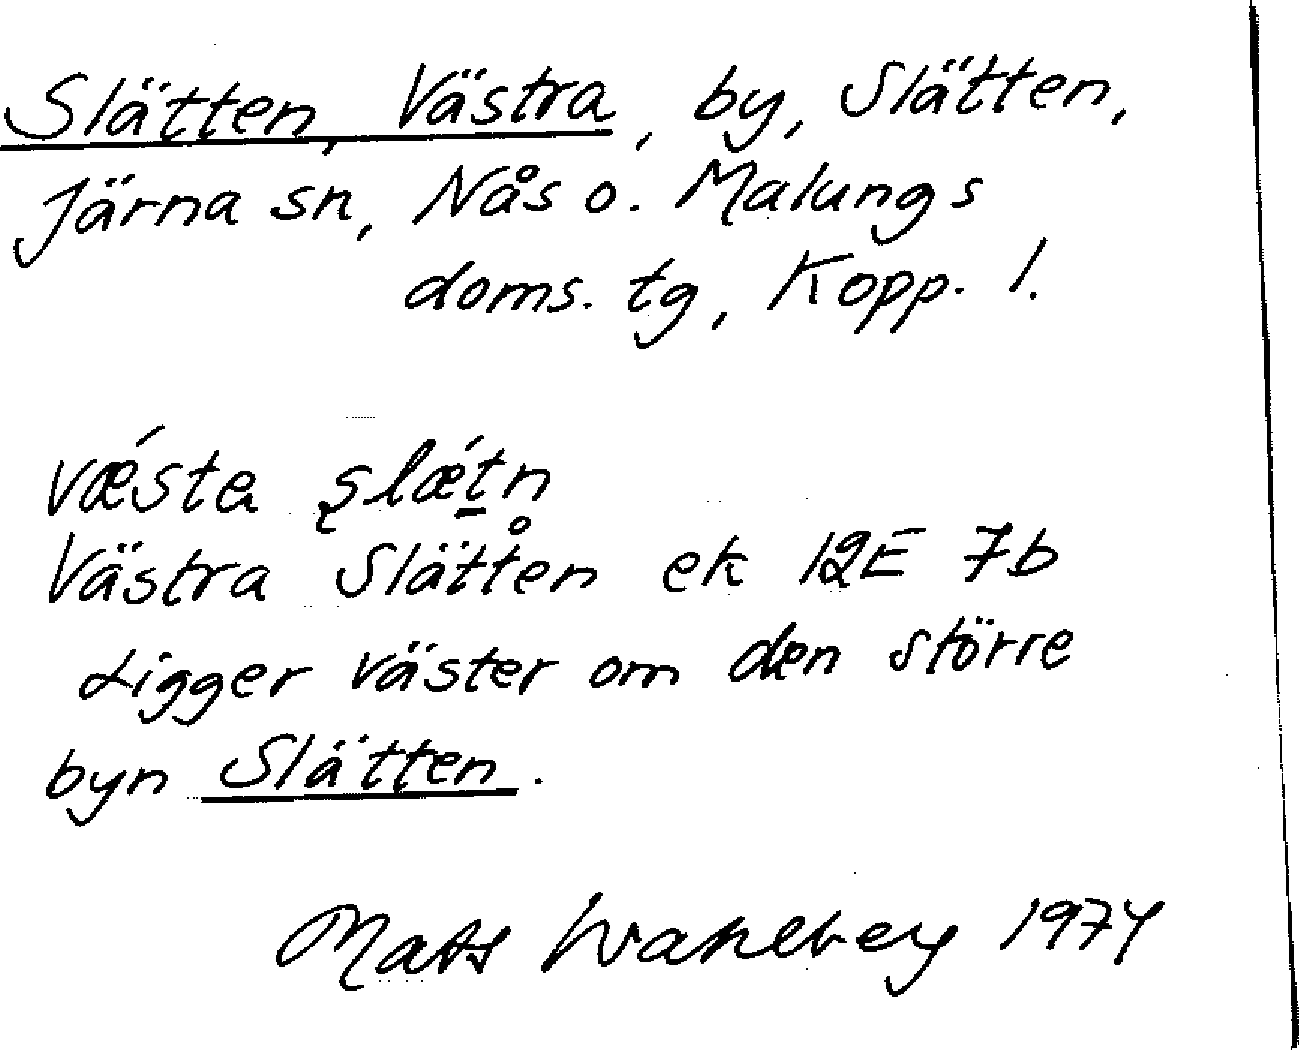 Slätten, Västra, by, Slätten,
Järna sn, Nås o. Malungs
doms. tg, Kopp. l.
vǽsta ʂlǽṯn
Västra Slätten ek 12E 7b
Ligger väster om den större
byn Slätten.
Mats Wahlberg 1974